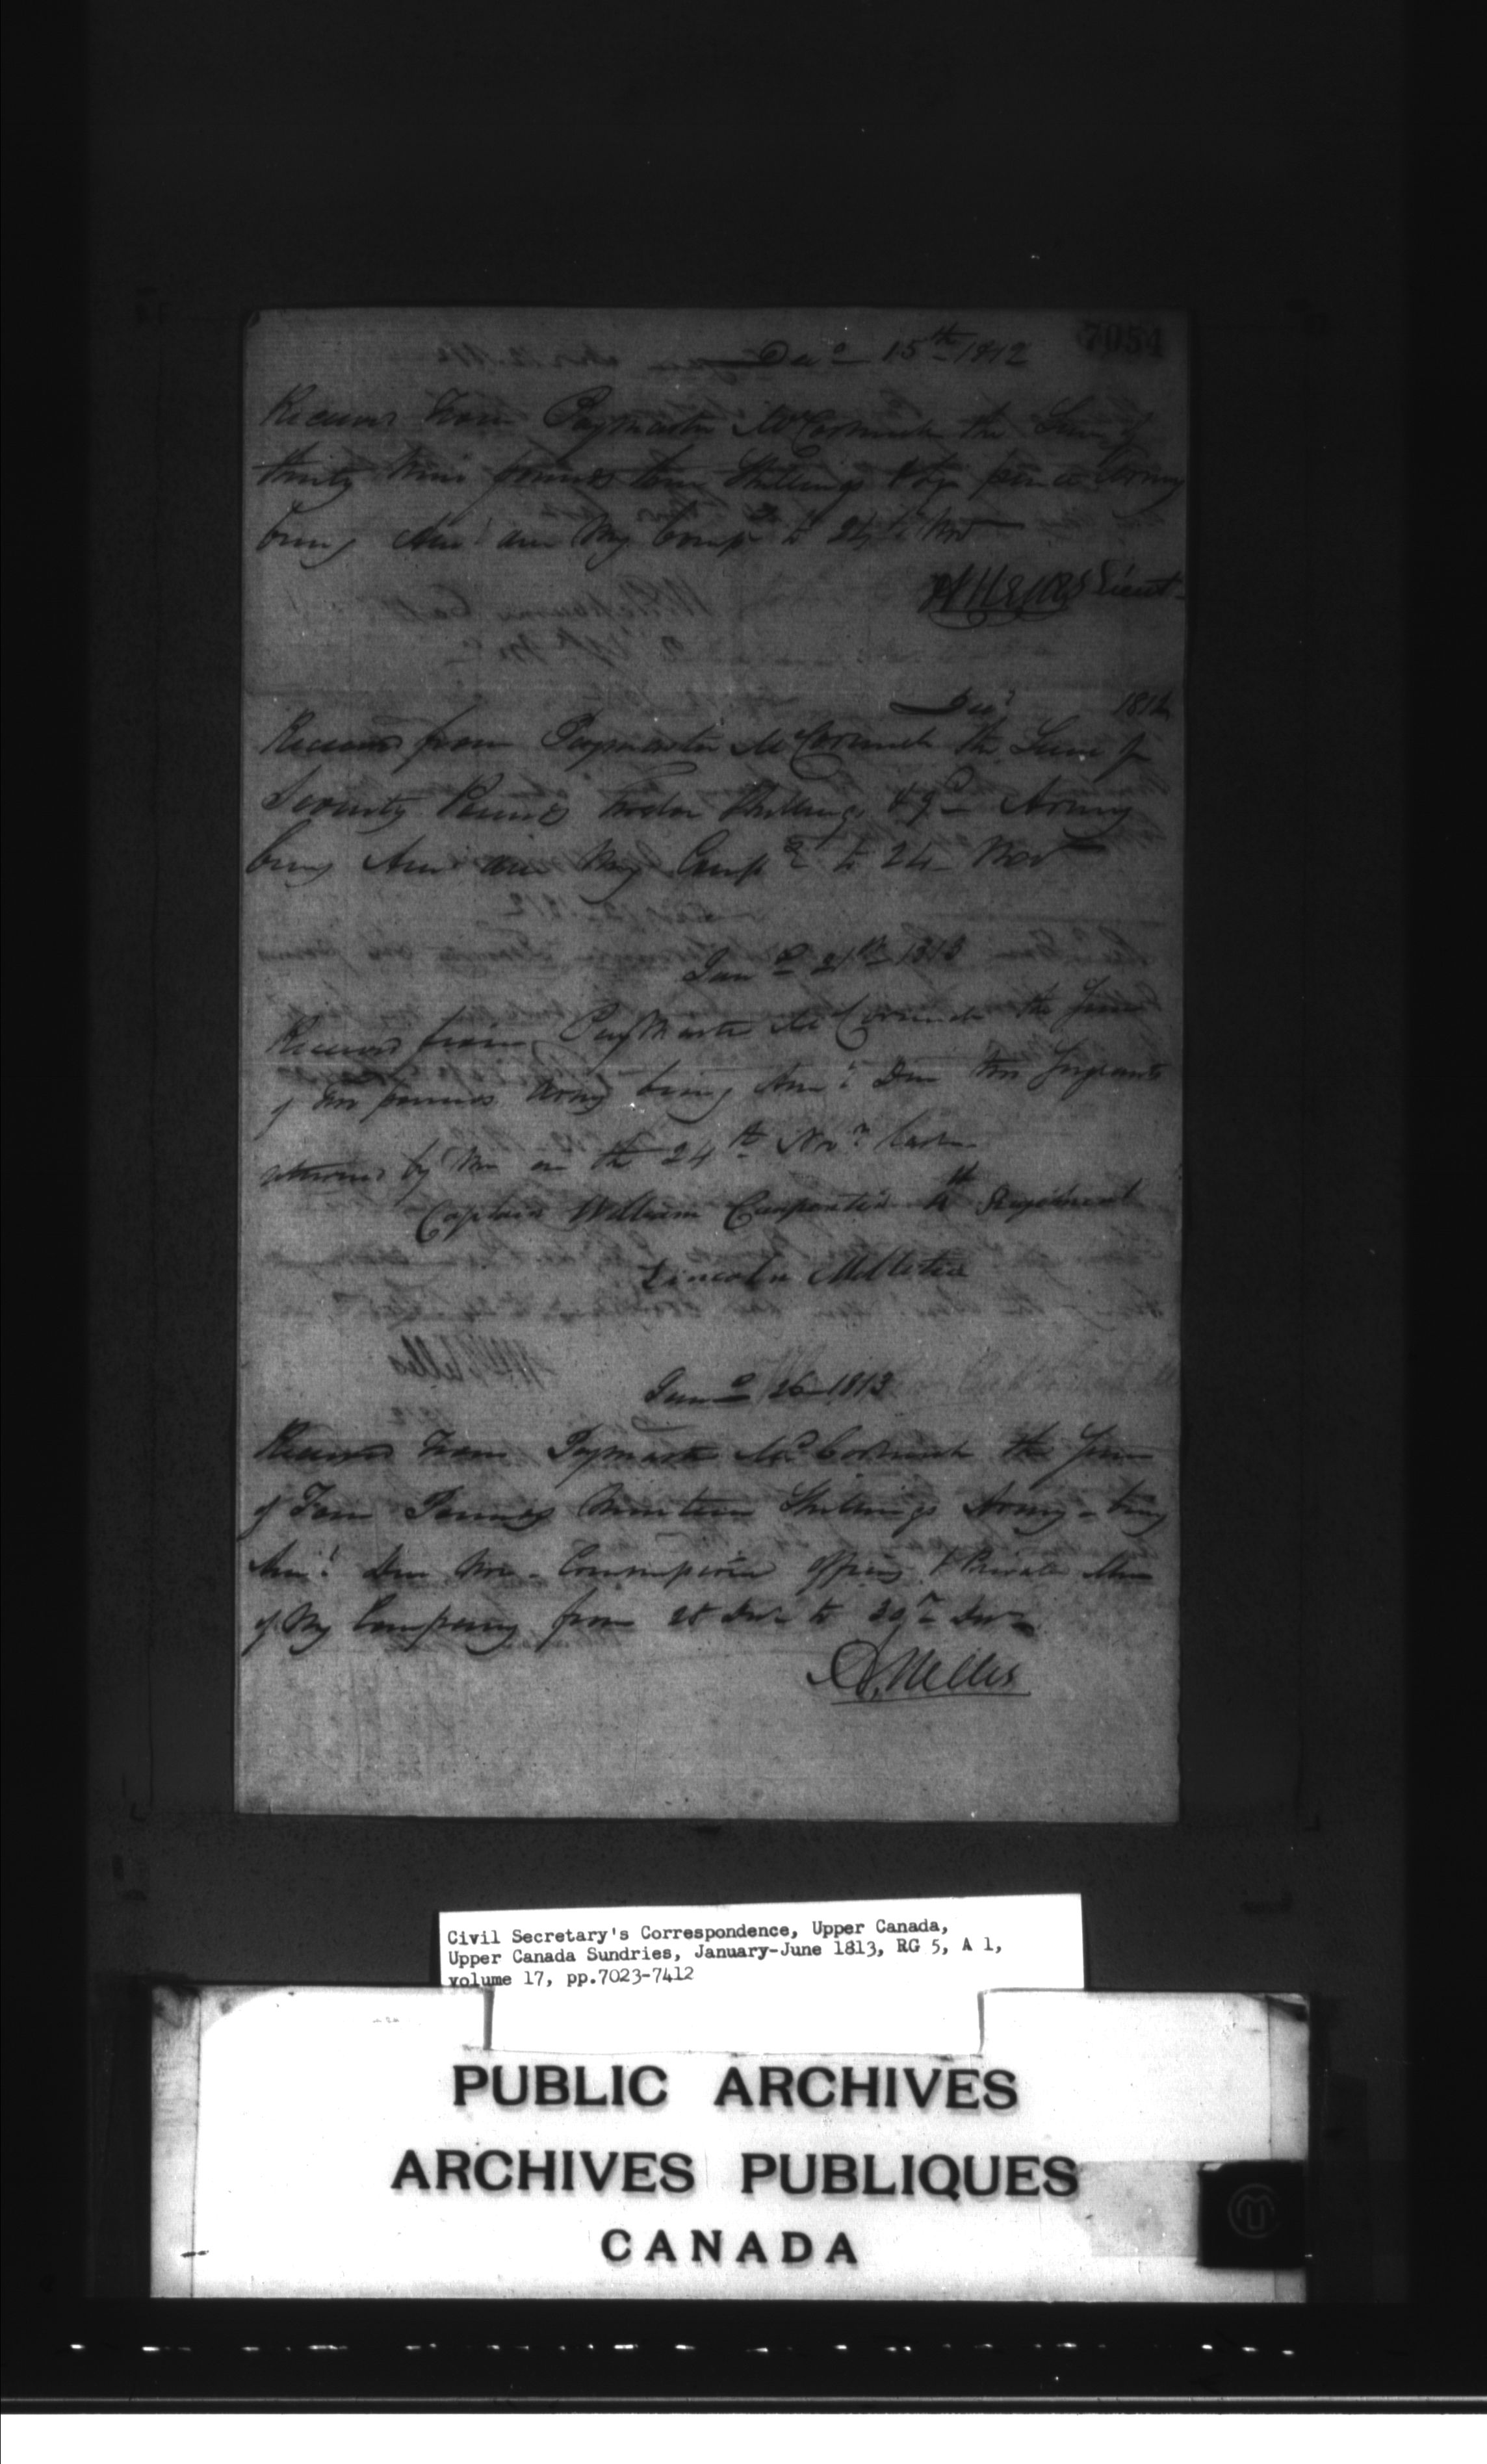 7054
Dec 15th 1812
Received From Paymaster McCormick the Sum of
thirty Nine pounds four Shillings & pence Army
being Amt due My Comp to 24th Nov
Lieut
Decr 1812
Received from Paymaster McCormick the Sum of
Seventy Pounds twelve Shillings & Army
being Amt due My Comp to 24 Nov
Jany 21st 1813
Received from PayMaster McCormick the Sum
of pounds Army being Amt Due Sergeants
by Me on the 24th Novr last
Captain William Carpenter 4th Regiment
Lincoln Militia
Jany 26 1813
Received From Paymaster McCormick the Sum
of Four Pounds Nineteen Shillings Army - being
Amt Due Non - Commission Officers & Private Men
of My Company from 25 Decr to
A. Nelles
Civil Secretary's Correspondence, Upper Canada,
Upper Canada Sundries, January-June 1813, RG 5, A 1,
volume 17, pp.7023-7412
PUBLIC ARCHIVES
ARCHIVES PUBLIQUES
CANADA